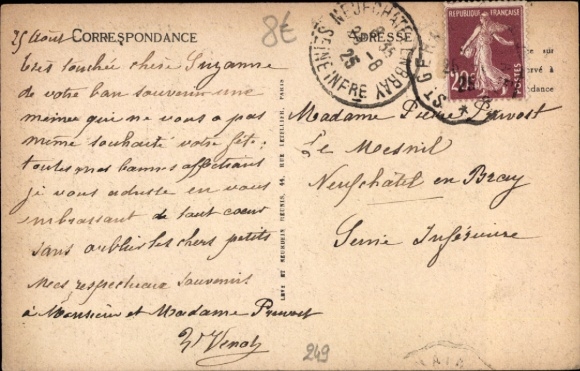 8€
25 Août
CORRESPONDANCE
Très touchée chère Suzanne
de votre bon souvenir
même qui ne vous a pas
même souhaité votre fête :
toutes mes bonnes affections
je vous adresse en vous
embrassant de tout coeur
sans oublier les chers petits
Mes respectueux souvenirs
à Monsieur et Madame Prevost
LEVY ET NEURDEIN RÉUNIS, 44, RUE LETELLIER, PARIS
ADRESSE
NEUFCHATEL-EN-BRAY
SEINE INFRE
25
REPUBLIQUE FRANÇAISE
POSTES
Madame Pierre Prevost
Le Mesnil
Neufchâtel en Bray
Seine Inférieure
249